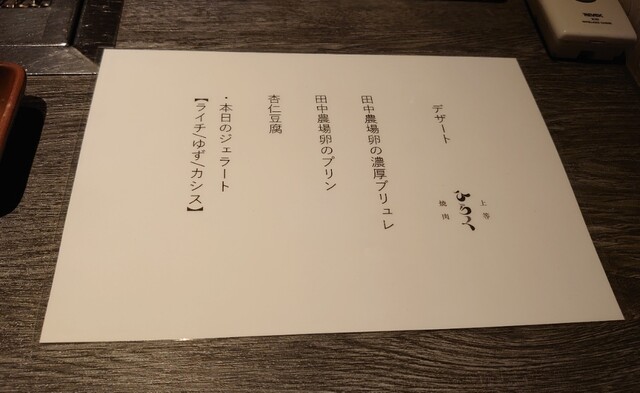 上等
焼肉
デザート
田中農場卵の濃厚ブリュレ
田中農場卵のプリン
杏仁豆腐
・本日のジェラート
【ライチ/ゆず/カシス】